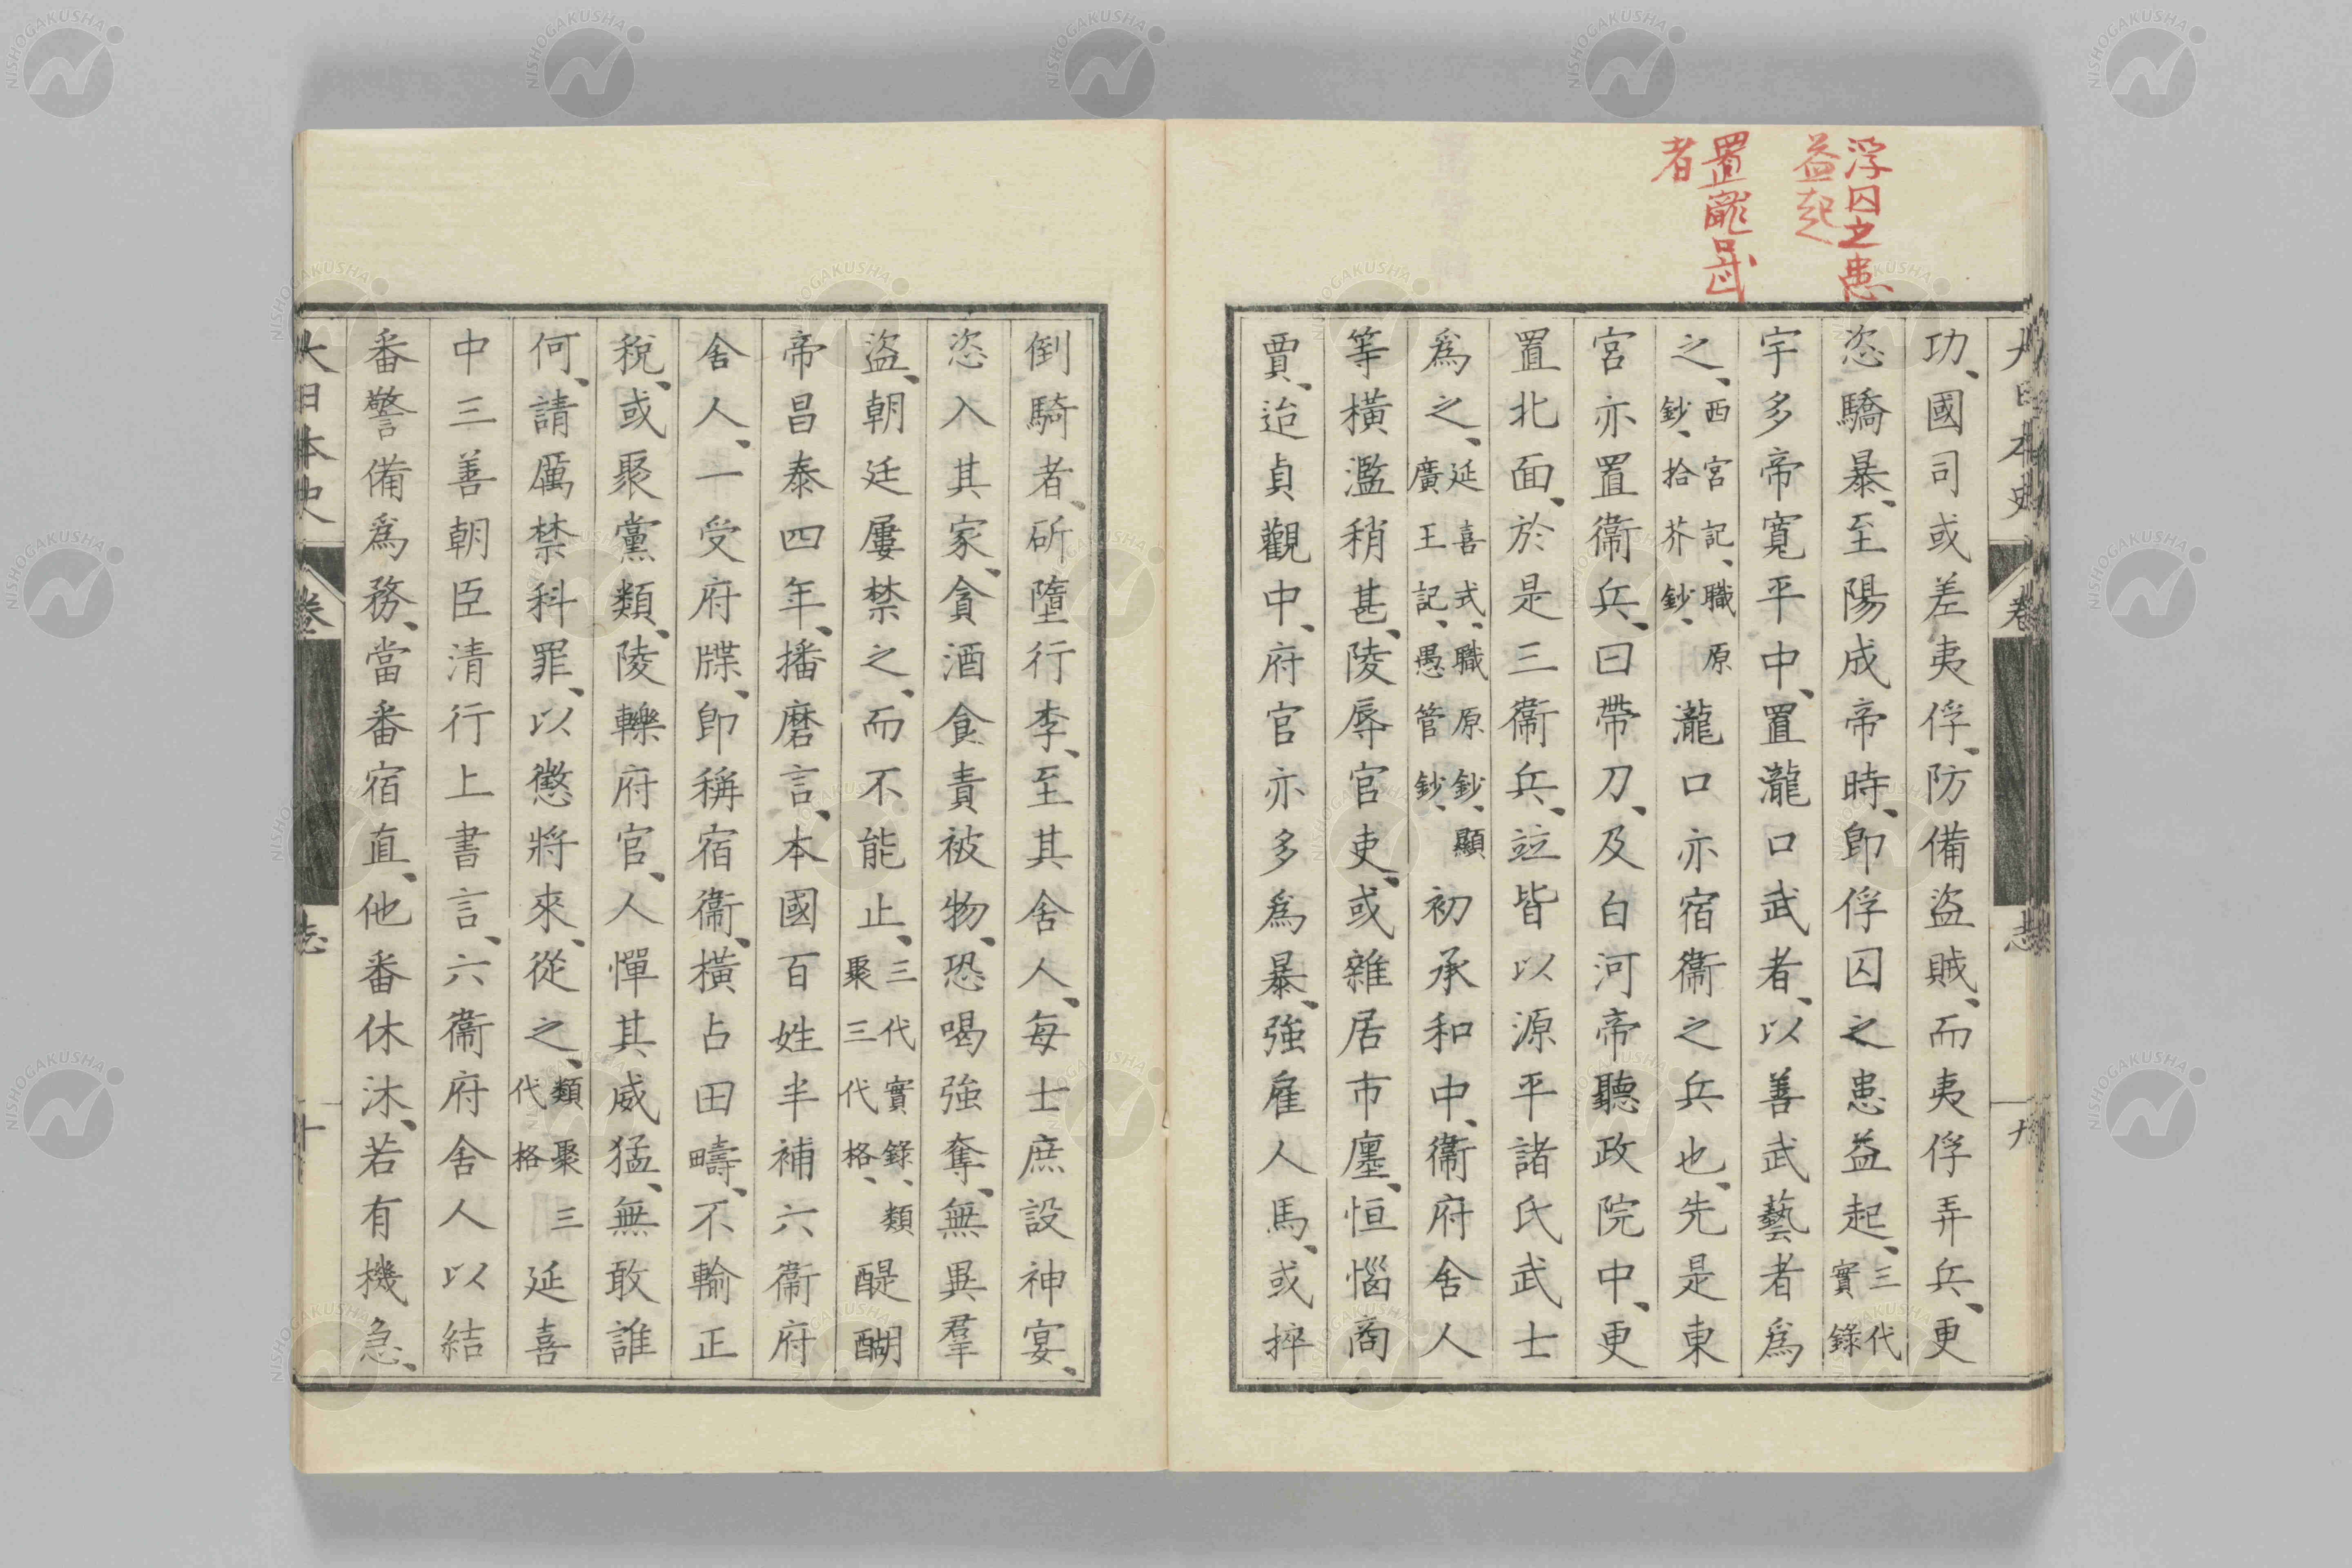 浮囚之患
益起
置瀧口武
者
大日本史 卷 志 九
功、國司或差夷俘、防備盜賊、而夷俘弄兵、更
恣驕暴、至陽成帝時、卽俘囚之患益起、三代實錄
宇多帝寬平中、置瀧口武者、以善武藝者爲
之、西宮記、職原鈔、拾芥鈔、瀧口亦宿衞之兵也、先是東
宮亦置衞兵、曰帶刀、及白河帝聽政院中、更
置北面、於是三衞兵、竝皆以源平諸氏武士
爲之、延喜式、職原鈔、顯廣王記、愚管鈔、初承和中、衞府舍人
等橫濫稍甚、陵辱官吏、或雜居市廛、恒惱商
賈、迨貞觀中、府官亦多爲暴、強雇人馬、或捽
倒騎者、斫墮行李、至其舍人、每士庶設神宴、
恣入其家、貪酒食責被物、恐喝強奪、無異羣
盜、朝廷屢禁之、而不能止、三代實錄、類聚三代格、醍醐
帝昌泰四年、播磨言、本國百姓半補六衞府
舍人、一受府牒、卽稱宿衞、橫占田疇、不輸正
稅、或聚黨類、陵轢府官、人憚其威猛、無敢誰
何、請厲禁科罪、以懲將來、從之、類聚三代格延喜
中三善朝臣清行上書言、六衞府舍人以結
番警備爲務、當番宿直、他番休沐、若有機急、
大日本史 卷 志 十